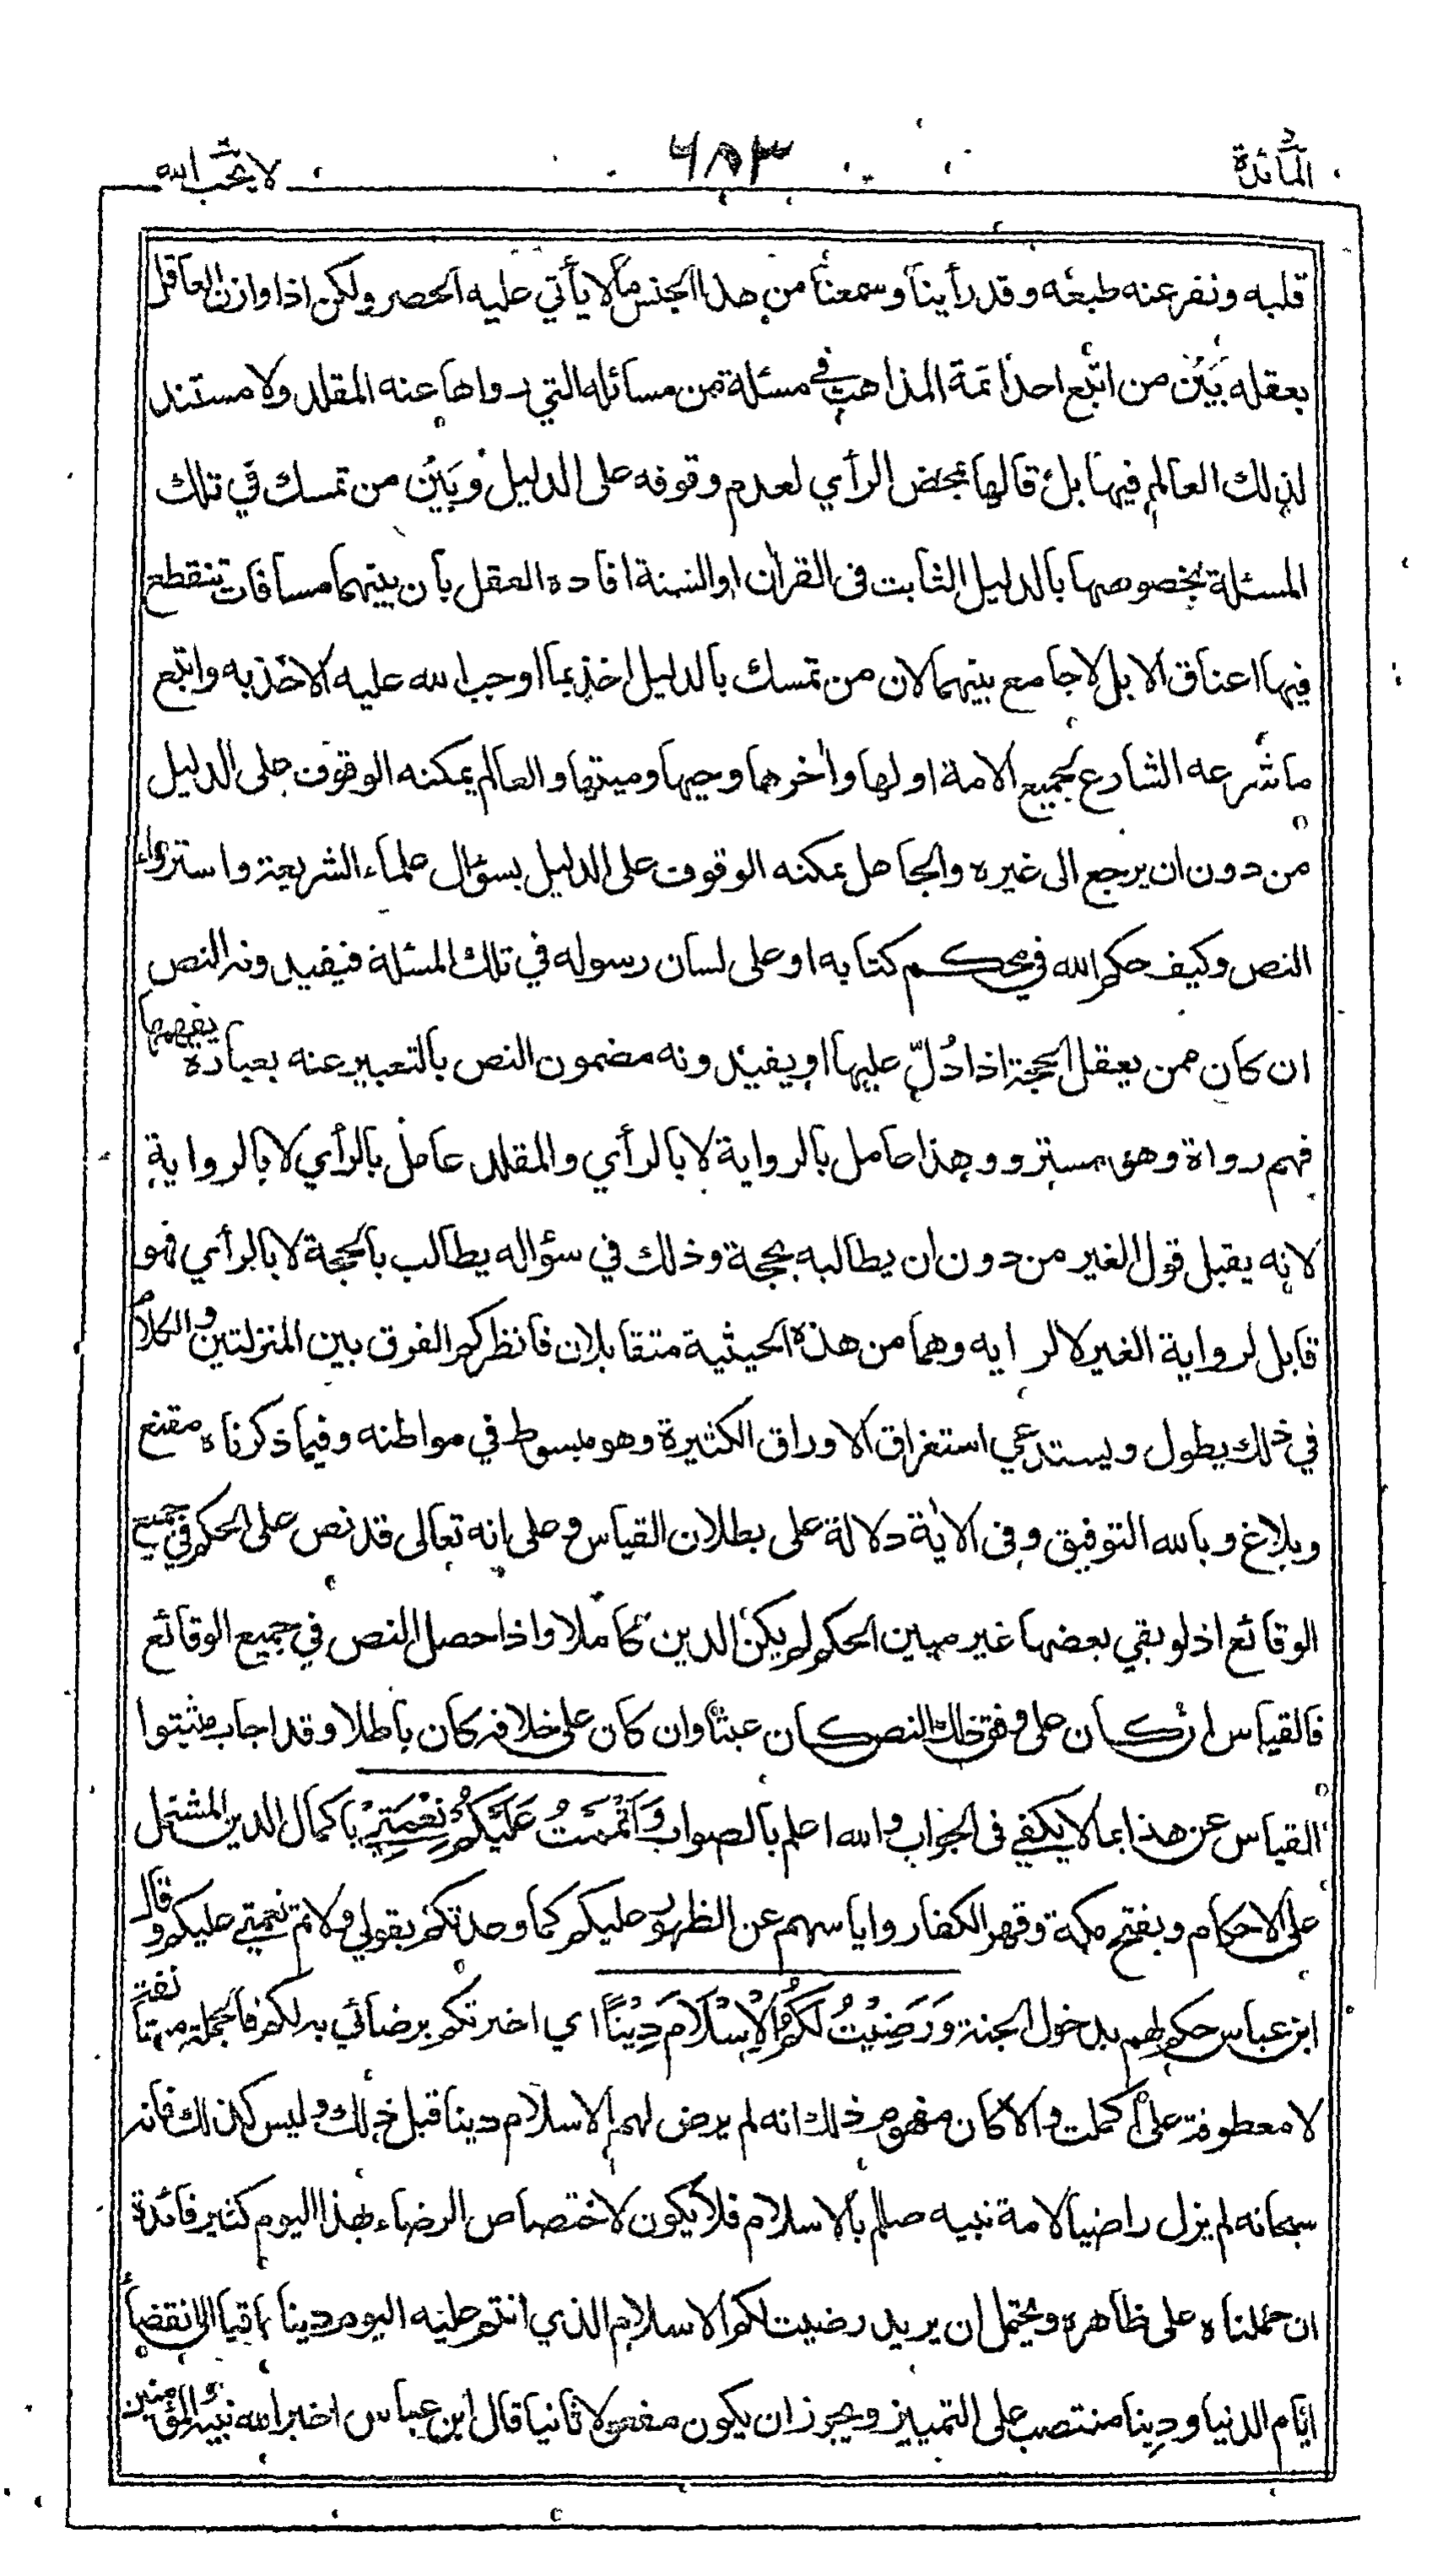 المائدة
٦٨٣
لا يحب الله
قلبه ونفر عنه طبعه وقد رأينا وسمعنا من هذا الجنس ما لا يأتي عليه الحصر ولكن اذا وازن العاقل
بعقله بَيْن من اتبع احد ائمة المذاهب في مسئلة من مسائله التي رواها عنه المقلد ولا مستند
لذلك العالم فيها بل قالها بمحض الرأي لعدم وقوفه على الدليل وبَيْن من تمسك في تلك
المسئلة بخصوصها بالدليل الثابت فى القرأن او السنة افاده العقل بان بينهما مسافات تنقطع
فيها اعناق الابل لا جامع بينهما لان من تمسك بالدليل اخذ بما اوجب الله عليه الاخذ به واتبع
ما شرعه الشارع لجميع الامة اولها وأخرها وحيها وميتها والعالم يمكنه الوقوف على الدليل
من دون ان يرجع الى غيره والجاهل يمكنه الوقوف على الدليل بسؤال علماء الشريعة واسترواء
النص وكيف حكم الله في محكم كتابه او على لسان رسوله في تلك المسئلة فيفيدونه النص
ان كان ممن يعقل الحجة اذا دُلّ عليها او يفيدونه مضمون النص بالتعبير عنه بعبارة يفهمها
فهم رواة وهو مسترو وهذا عامل بالرواية لا بالرأي والمقلد عامل بالرأي لا بالرواية
لانه يقبل قول الغير من دون ان يطالبه بحجة وذلك في سؤاله يطالب بالحجة لا بالرأي فهو
قابل لرواية الغير لا لرايه وهما من هذه الحيثية متقابلان فانظر كم الفرق بين المنزلتين والكلام
في ذلك يطول ويستدعي استغراق الاوراق الكثيرة وهو مبسوط في مواطنه وفيما ذكرناه مقنع
وبلاغ وبالله التوفيق وفى الأية دلالة على بطلان القياس وعلى انه تعالى قد نص على الحكم في جميع
الوقائع اذ لو بقي بعضها غير مبين الحكم لم يكن الدين كاملا واذا حصل النص في جميع الوقائع
فالقياس ان كان على وفق ذلك النص كان عبثا وان كان على خلافه كان باطلا وقد اجاب مثبتوا
القياس عن هذا بما لا يكفي فى الجواب والله اعلم بالصواب وَاَتْمَمْتُ عَلَيْكُمْ نِعْمَتِيْ باكمال الدين المشتمل
على الاحكام وبفتح مكة وقهر الكفار واياسهم عن الظهور عليكم كما وعدتكم بقولي ولاتم نعمتي عليكم وقال
ابن عباس حكم لهم بدخول الجنة وَرَضِيْتُ لَكُمُ الْاِسْلَامَ دِيْنًا اي اخترتكم برضائي به لكم فالجملة مستانفة
لا معطوفة على اكملت والا كان مفهوم ذلك انه لم يرض لهم الاسلام دينا قبل ذلك وليس كذلك فانه
سبحانه لم يزل راضيا لامة نبيه صللم بالاسلام فلا يكون لاختصاص الرضاء بهذا اليوم كثير فائدة
ان حملناه على ظاهره ويحتمل ان يريد رضيت لكم الاسلام الذي انتم عليه اليوم دينا باقيا الى انقضاء
ايّام الدنيا ودِينا منتصب على التمييز ويجوز ان يكون مفعولا ثانيا قال ابن عباس اخبر الله نبيه والمؤمنين